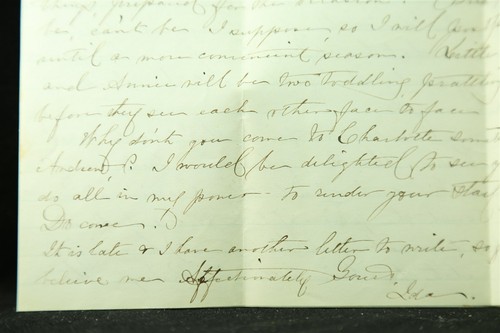 be, can't be I suppose, so I will
until a more convenient season. Little
and Annie will be two toddling, prattling
before they see each other face to face
Why don't you come to Charlotte
Andrew? I would be delighted to see
do all in my power to render your stay
Do come.
It is late & I have another letter to write, so
believe me Affectionately Yours,
Ida.